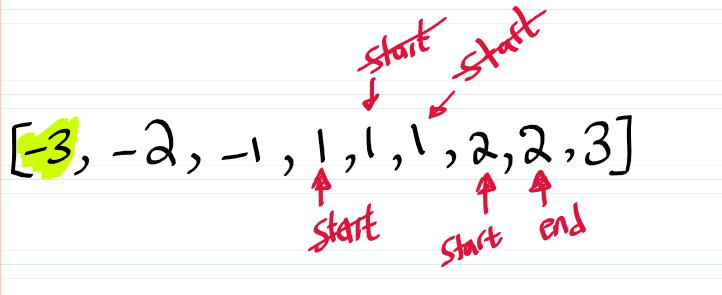 start start
[-3, -2, -1, 1, 1, 1, 2, 2, 3]
start start end